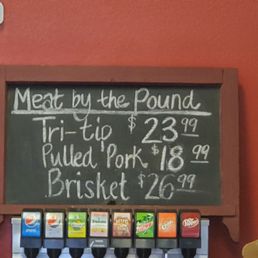 Meat by the Pound
Tri-tip $23.99
Pulled Pork $18.99
Brisket $26.99